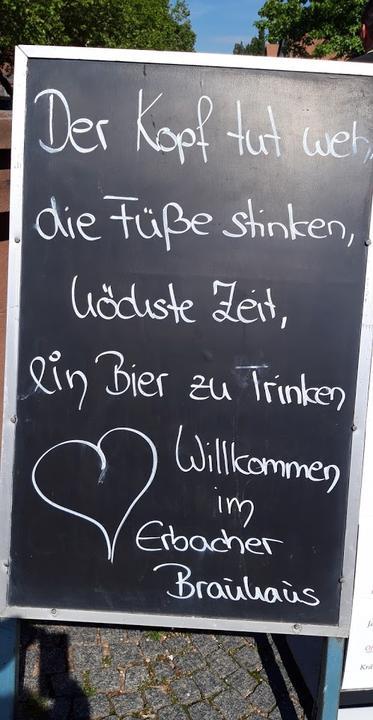 Der Kopf tut weh,
die Füße stinken,
höchste Zeit,
ein Bier zu Trinken
Willkommen
im
Erbacher
Brauhaus